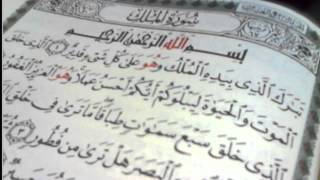 سُورَةُ الْمُلْكِ
بِسْمِ اللَّهِ الرَّحْمَٰنِ الرَّحِيمِ
تَبَارَكَ الَّذِي بِيَدِهِ الْمُلْكُ وَهُوَ عَلَىٰ كُلِّ شَيْءٍ قَدِيرٌ ١ الَّذِي خَلَقَ
الْمَوْتَ وَالْحَيَاةَ لِيَبْلُوَكُمْ أَيُّكُمْ أَحْسَنُ عَمَلًا وَهُوَ الْعَزِيزُ الْغَفُورُ
الَّذِي خَلَقَ سَبْعَ سَمَاوَاتٍ طِبَاقًا مَا تَرَىٰ فِي خَلْقِ
الْبَصَرَ هَلْ تَرَىٰ مِنْ فُطُورٍ ٣